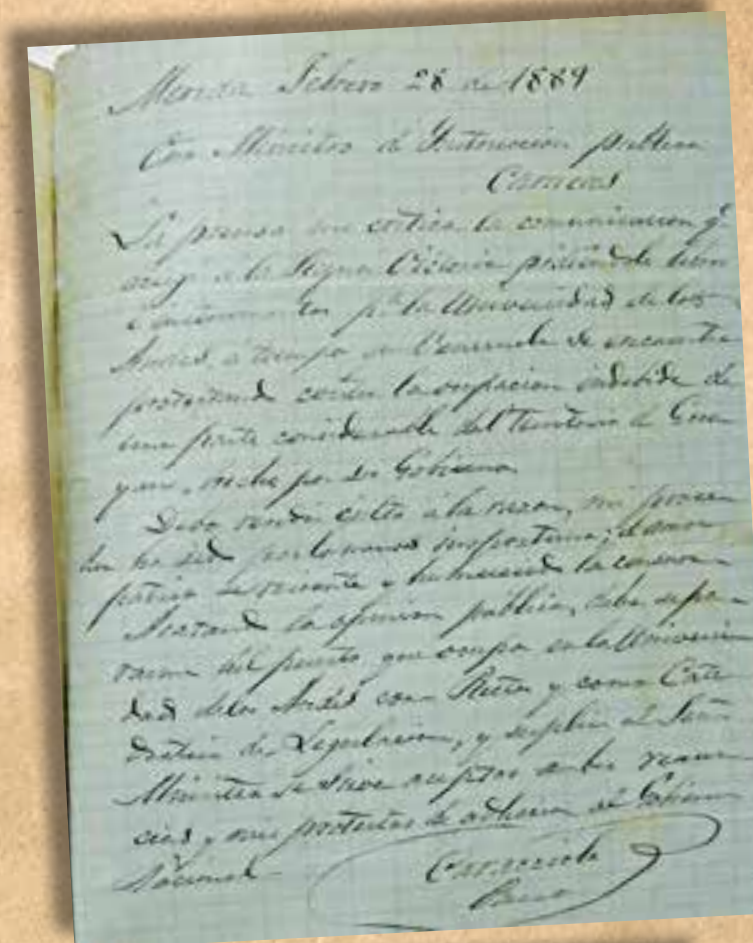 Merida Febrero 28 de 1889
Con Ministro de Instruccion publica
Caracas
La prensa me critica la comunicacion q.
á la Reyna Victoria pidiendole
pª la Universidad de los
Andes, á tiempo en Venezuela se encuentra
protestando contra la ocupacion indebida de
una parte considerable del Territorio de Gua-
yana, hecha por su Gobierno
Debo rendir culto á la razon, mi proceder
ha sido por lo menos inoportuno; el amor
patrio se resiente y la
Acatando la opinion publica, debo sepa-
rarme del puesto que ocupo en la Universi-
dad de los Andes como Rector y como Cate-
dratico de Legislacion, y suplico al Señor
Ministro se sirva aceptar ambas renun-
cias y mis protestas de adhesion al Gobierno
Nacional
Caracciolo
Parra